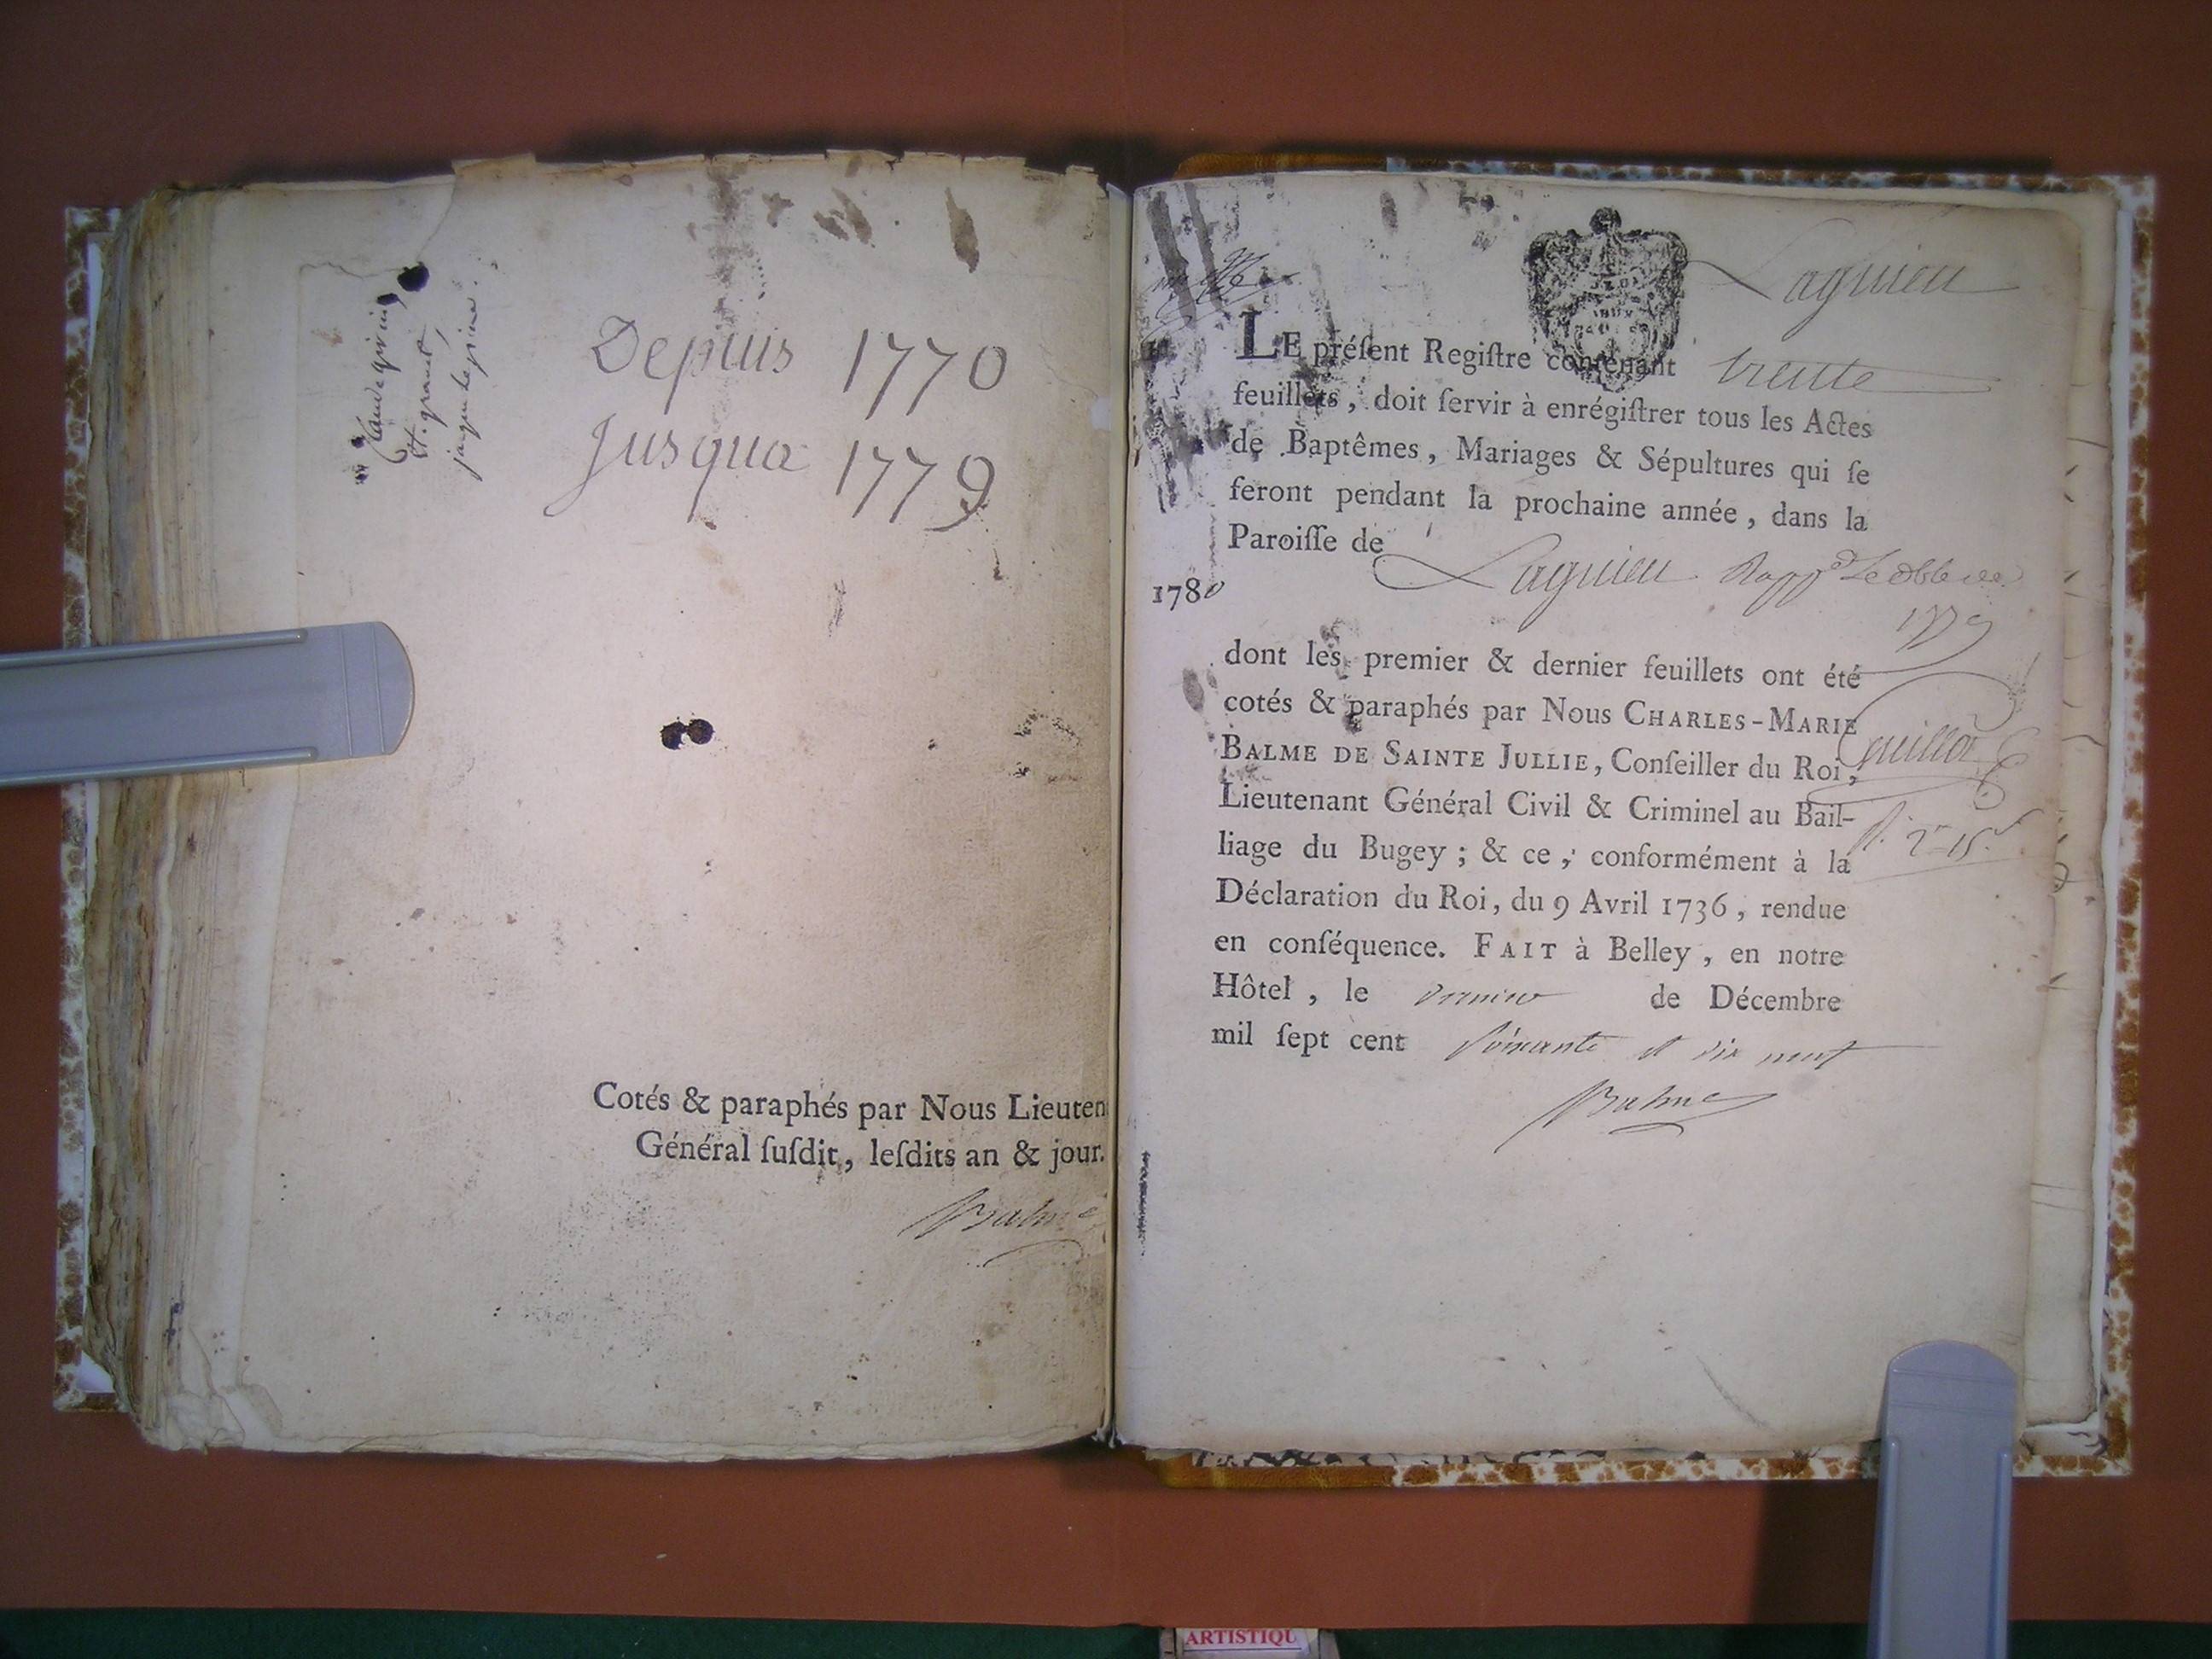 Depuis 1770
Jusqua 1779
Cotés & paraphés par Nous Lieuten
Général ſuſdit, leſdits an & jour.
Balme
Lagnieu
LE préſent Regiſtre contenant trente
feuillets, doit ſervir à enrégiſtrer tous les Actes
de Baptêmes, Mariages & Sépultures qui ſe
feront pendant la prochaine année, dans la
Paroiſſe de Lagnieu
1780
1779
dont les premier & dernier feuillets ont été
cotés & paraphés par Nous CHARLES-MARIE
BALME DE SAINTE JULLIE, Conſeiller du Roi,
Lieutenant Général Civil & Criminel au Bail-
liage du Bugey ; & ce, conformément à la
Déclaration du Roi, du 9 Avril 1736, rendue
en conſéquence. FAIT à Belley, en notre
Hôtel, le dernier de Décembre
mil ſept cent soixante et dix neuf
Balme
ARTISTIQU